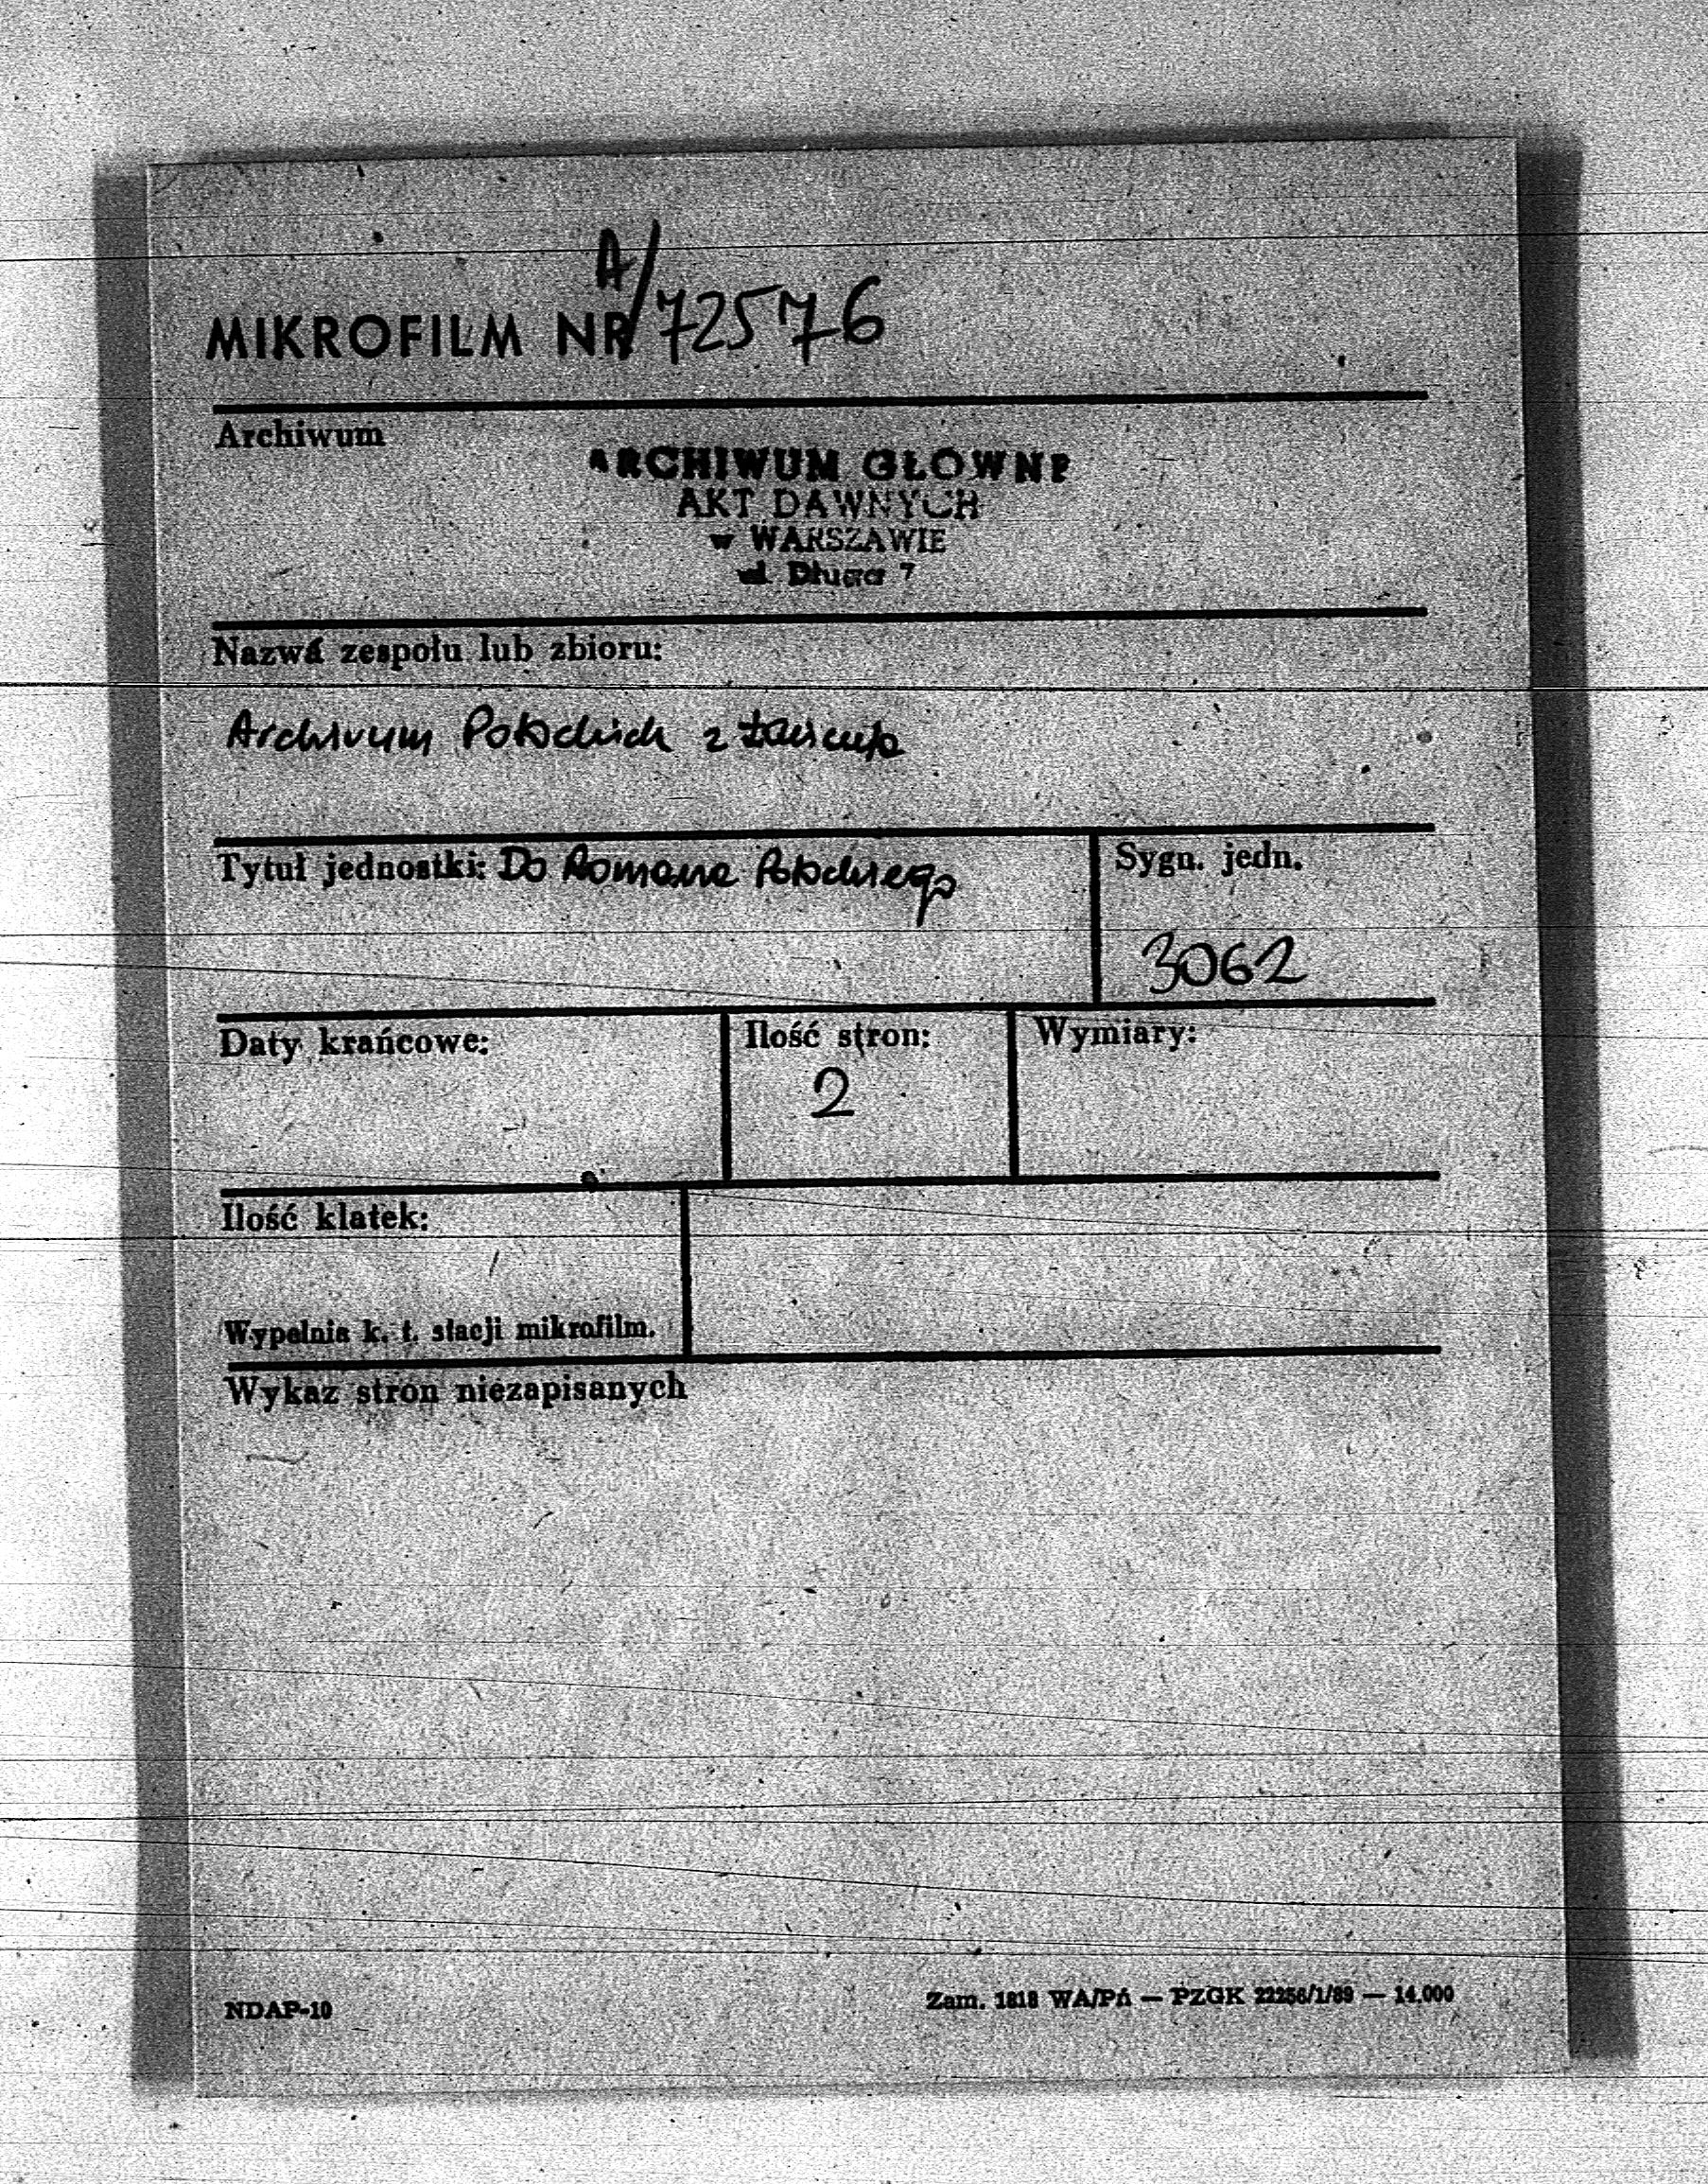 MIKROFILM NR A/72576
Archiwum
ARCHIWUM GŁOWNE
AKT DAWNYCH
w WARSZAWIE
ul. Długa 7
Nazwa zespołu lub zbioru:
Archiwum Potockich z Łańcuta
Tytuł jednostki: Do Romana Potockiego
Sygn. jedn.
3062
Daty krańcowe:
Ilość stron:
2
Wymiary:
Ilość klatek:
Wypełnia k. t. stacji mikrofilm.
Wykaz stron niezapisanych
NDAP-10
Zam. 1818 WA/Pń — PZGK 22256/1/89 — 14.000